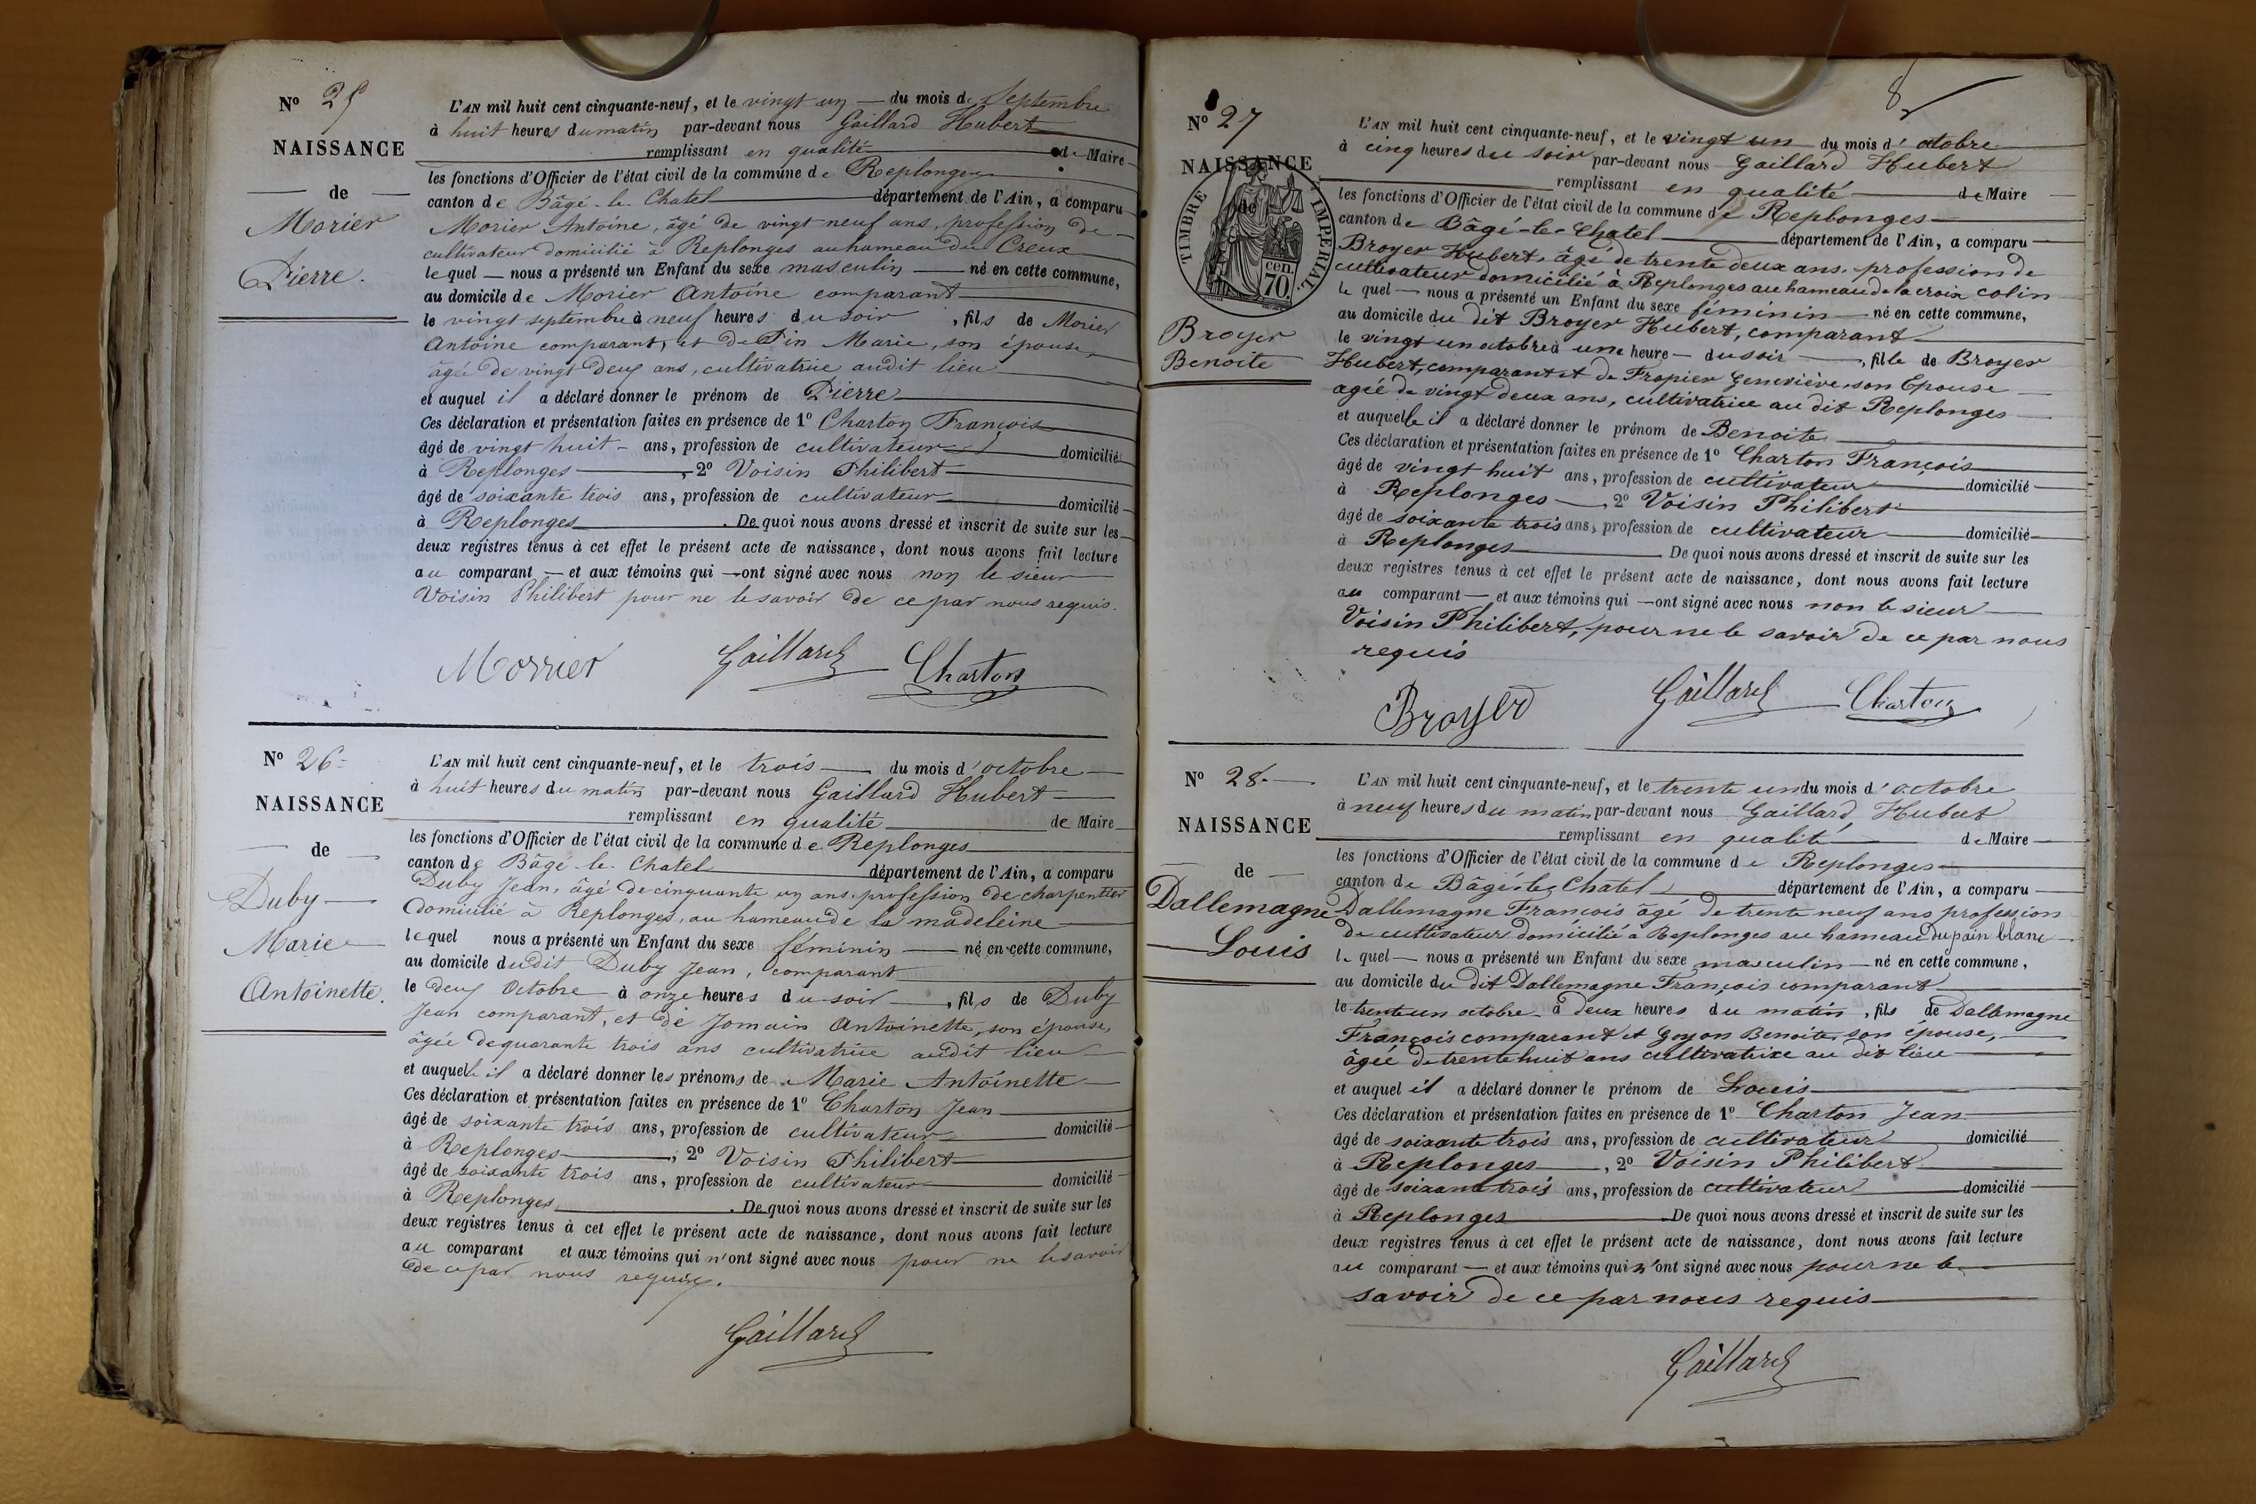 Nº 25
NAISSANCE
de
Morier
Pierre.
L'AN mil huit cent cinquante-neuf, et le vingt un du mois de Septembre
à huit heures du matin par-devant nous Gaillard Hubert
remplissant en qualité de Maire
les fonctions d'Officier de l'état civil de la commune de Replonges
canton de Bâgé-le-Chatel département de l'Ain, a comparu
Morier Antoine, âgé de vingt neuf ans, profession de
cultivateur domicilié à Replonges au hameau du Creux
lequel nous a présenté un Enfant du sexe masculin né en cette commune,
au domicile de Morier Antoine comparant
le vingt septembre à neuf heures du soir, fils de Morier
Antoine comparant, et de Pin Marie, son épouse,
âgée de vingt deux ans, cultivatrice audit lieu
et auquel il a déclaré donner le prénom de Pierre
Ces déclaration et présentation faites en présence de 1º Charton François
âgé de vingt huit ans, profession de cultivateur domicilié
à Replonges, 2º Voisin Philibert
âgé de soixante trois ans, profession de cultivateur domicilié
à Replonges. De quoi nous avons dressé et inscrit de suite sur les
deux registres tenus à cet effet le présent acte de naissance, dont nous avons fait lecture
au comparant et aux témoins qui ont signé avec nous non le sieur
Voisin Philibert pour ne le savoir de ce par nous requis.
Morrier Gaillard Charton
Nº 26
NAISSANCE
de
Duby
Marie
Antoinette.
L'AN mil huit cent cinquante-neuf, et le trois du mois d'octobre
à huit heures du matin par-devant nous Gaillard Hubert
remplissant en qualité de Maire
les fonctions d'Officier de l'état civil de la commune de Replonges
canton de Bâgé-le-Chatel département de l'Ain, a comparu
Duby Jean, âgé de cinquante un ans, profession de charpentier
domicilié à Replonges, au hameau de la madeleine
lequel nous a présenté un Enfant du sexe féminin né en cette commune,
au domicile dudit Duby Jean, comparant
le deux Octobre à onze heures du soir, fils de Duby
Jean comparant, et de Jomain Antoinette, son épouse,
âgée de quarante trois ans cultivatrice audit lieu
et auquelle il a déclaré donner les prénoms de Marie Antoinette
Ces déclaration et présentation faites en présence de 1º Charton Jean
âgé de soixante trois ans, profession de cultivateur domicilié
à Replonges, 2º Voisin Philibert
âgé de soixante trois ans, profession de cultivateur domicilié
à Replonges. De quoi nous avons dressé et inscrit de suite sur les
deux registres tenus à cet effet le présent acte de naissance, dont nous avons fait lecture
au comparant et aux témoins qui n'ont signé avec nous pour ne le savoir
de ce par nous requis.
Gaillard
8
Nº 27
NAISSANCE
de
TIMBRE IMPÉRIAL
cen.
70.
Broyer
Benoite
L'AN mil huit cent cinquante-neuf, et le vingt un du mois d'octobre
à cinq heures du soir par-devant nous Gaillard Hubert
remplissant en qualité de Maire
les fonctions d'Officier de l'état civil de la commune de Replonges
canton de Bâgé-le-Chatel département de l'Ain, a comparu
Broyer Hubert, âgé de trente deux ans, profession de
cultivateur domicilié à Replonges au hameau de la croix colin
lequel nous a présenté un Enfant du sexe féminin né en cette commune,
au domicile du dit Broyer Hubert, comparant
le vingt un octobre à une heure du soir, fille de Broyer
Hubert, comparant et de Fropier Geneviève son Epouse
agée de vingt deux ans, cultivatrice au dit Replonges
et auquelle il a déclaré donner le prénom de Benoite
Ces déclaration et présentation faites en présence de 1º Charton François
âgé de vingt huit ans, profession de cultivateur domicilié
à Replonges, 2º Voisin Philibert
âgé de soixante trois ans, profession de cultivateur domicilié
à Replonges. De quoi nous avons dressé et inscrit de suite sur les
deux registres tenus à cet effet le présent acte de naissance, dont nous avons fait lecture
au comparant et aux témoins qui ont signé avec nous non le sieur
Voisin Philibert, pour ne le savoir de ce par nous
requis
Broyer Gaillard Charton
Nº 28
NAISSANCE
de
Dallemagne
Louis
L'AN mil huit cent cinquante-neuf, et le trente un du mois d'octobre
à neuf heures du matin par-devant nous Gaillard Hubert
remplissant en qualité de Maire
les fonctions d'Officier de l'état civil de la commune de Replonges
canton de Bâgé-le-Chatel département de l'Ain, a comparu
Dallemagne François âgé de trente neuf ans profession
de cultivateur domicilié à Replonges au hameau du pain blanc
lequel nous a présenté un Enfant du sexe masculin né en cette commune,
au domicile du dit Dallemagne François comparant
le trente un octobre à deux heures du matin, fils de Dallemagne
François comparant et Goyon Benoite, son épouse,
âgée de trente huit ans cultivatrice au dit lieu
et auquel il a déclaré donner le prénom de Louis
Ces déclaration et présentation faites en présence de 1º Charton Jean
âgé de soixante trois ans, profession de cultivateur domicilié
à Replonges, 2º Voisin Philibert
âgé de soixante trois ans, profession de cultivateur domicilié
à Replonges. De quoi nous avons dressé et inscrit de suite sur les
deux registres tenus à cet effet le présent acte de naissance, dont nous avons fait lecture
au comparant et aux témoins qui n'ont signé avec nous pour ne le
savoir de ce par nous requis
Gaillard